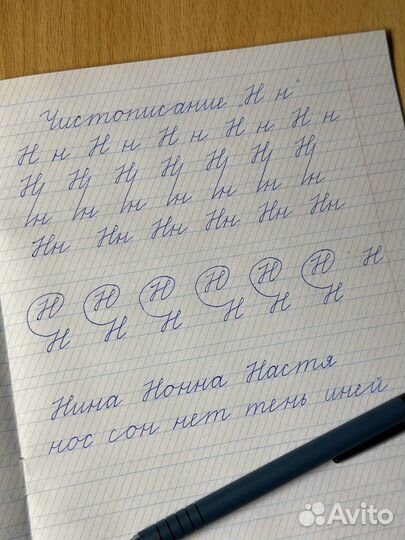 Чистописание „Н н"
Н н Н н Н н Н н Н н
Н Н Н Н Н Н
н н н н н н
Нн Нн Нн Нн Нн Нн
Н Н Н Н Н Н Н
Н Н Н Н Н Н
Нина Нонна Настя
нос сон нет тень иней
Avito